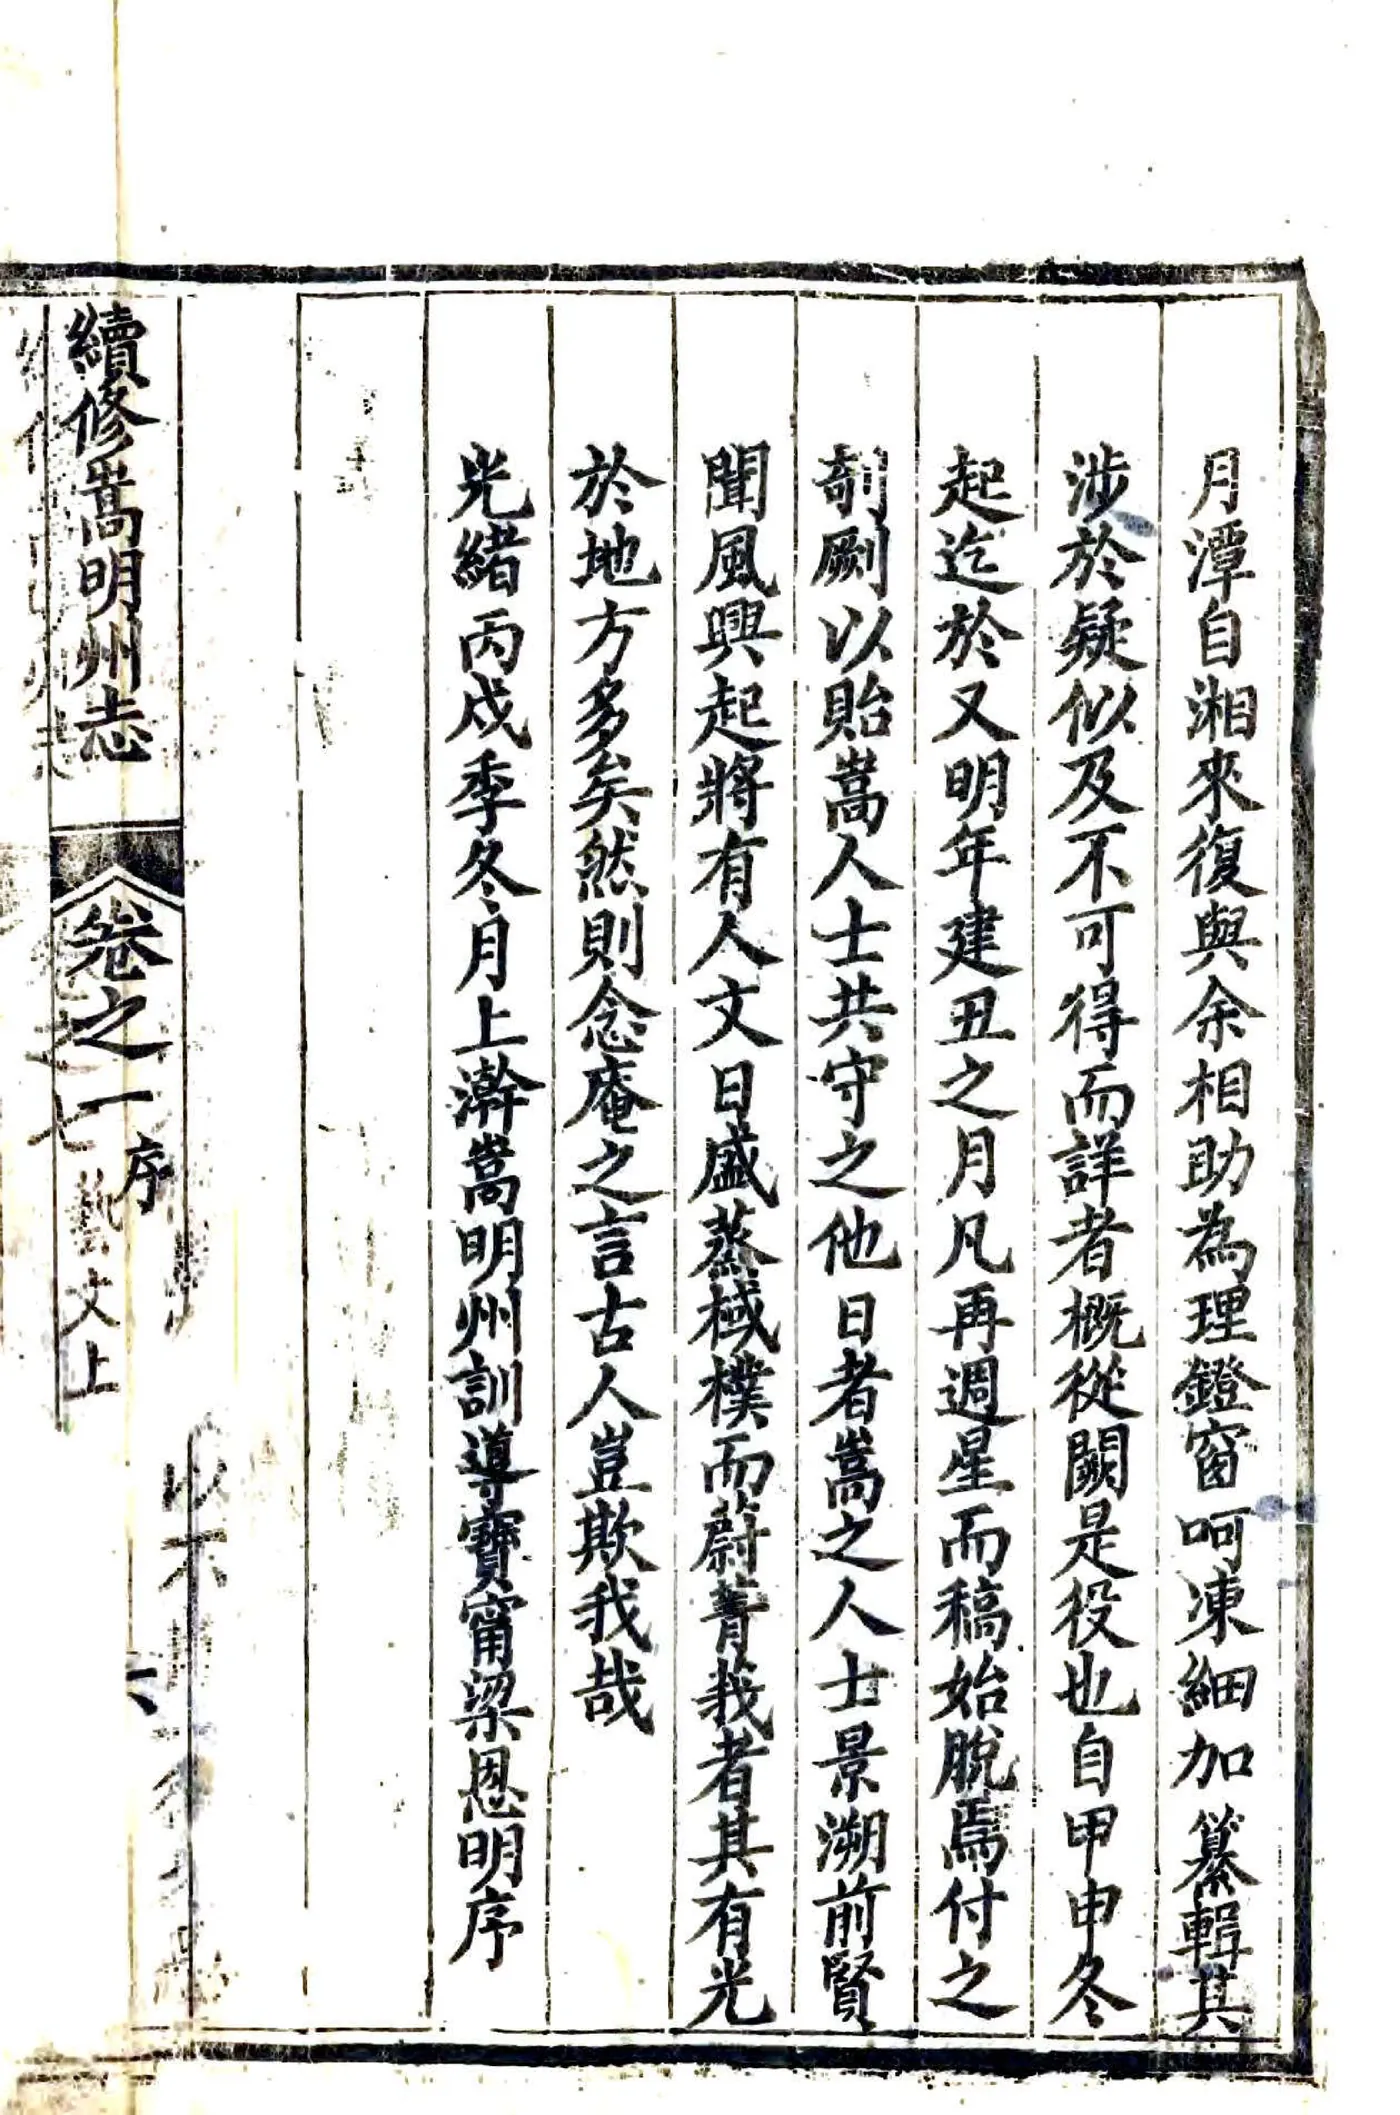 月潭自湘來復與余相助為理鐙窗呵凍細加纂輯其
涉於疑似及不可得而詳者概從闕是役也自甲申冬
起迄於又明年建丑之月凡再週星而稿始脫焉付之
剞劂以貽嵩人士共守之他日者嵩之人士景溯前賢
聞風興起將有人文日盛蒸棫樸而蔚菁莪者其有光
於地方多矣然則念庵之言古人豈欺我哉
光緒丙戌季冬月上澣嵩明州訓導寶甯梁恩明序
續修嵩明州志
卷之一序
六
藝文上